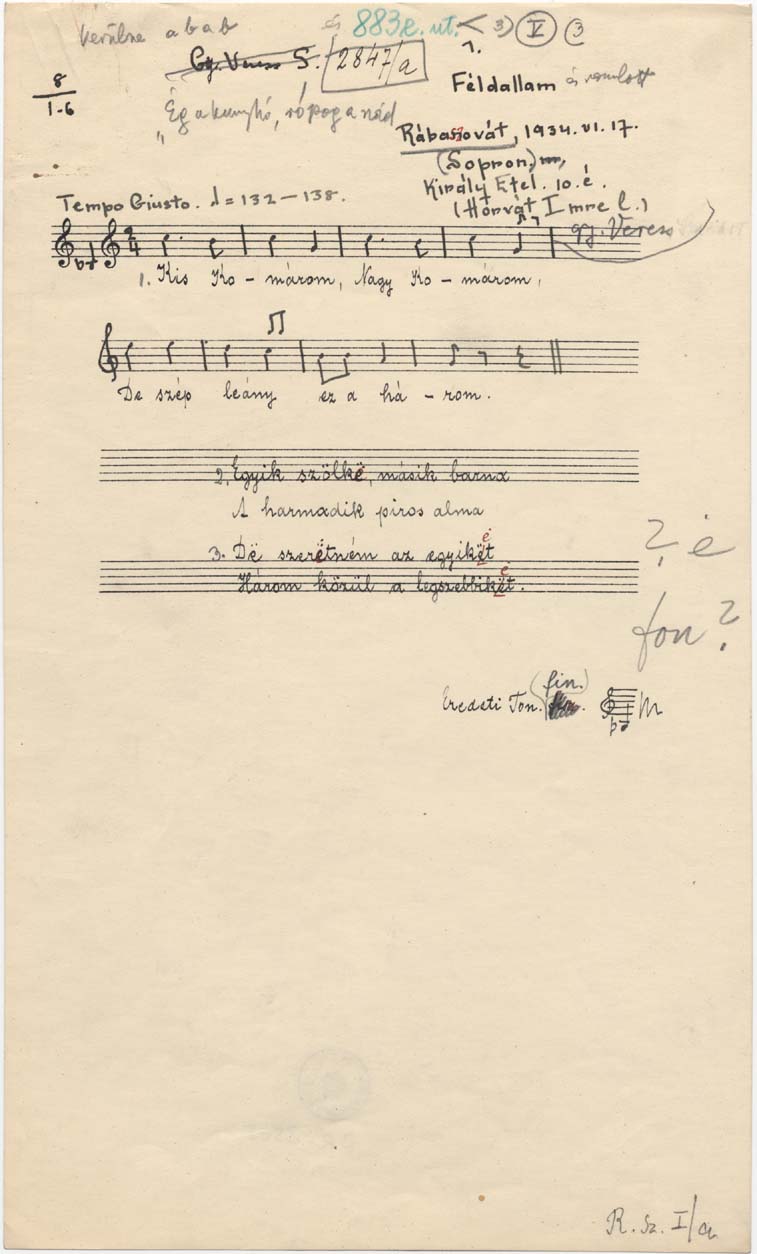 kerülne a b a b
és 883e. ut. < 3) V 3
Gy. Veress S. 2847/a
7.
8
1-6
Féldallam és romlott
"Ég a kunyhó, ropog a nád
Rábaszovát, 1934. VI. 17.
(Sopron) m,
Király Etel. 10. é.
(Horvát Imre l.)
gy. Veress
Tempo Giusto. = 132 – 138.
2
4
1. Kis Ko – márom, Nagy Ko – márom,
De szép leány ez a há – rom.
2. Egyik szölkë, másik barna
A harmadik piros alma
3. Dë szerëtném az egyikët
ė
Három közül a legszebbikët.
ė
? ė
fon?
Eredeti Ton. (fin.)
R. Sz. I/a